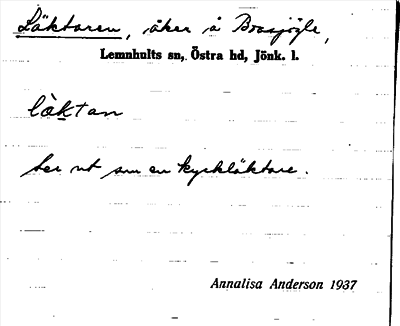 Läktaren, åker å Brasjögle,
Lemnhults sn, Östra hd, Jönk. l.
làktan
Ser ut som en kyrkläktare.
Annalisa Anderson 1937